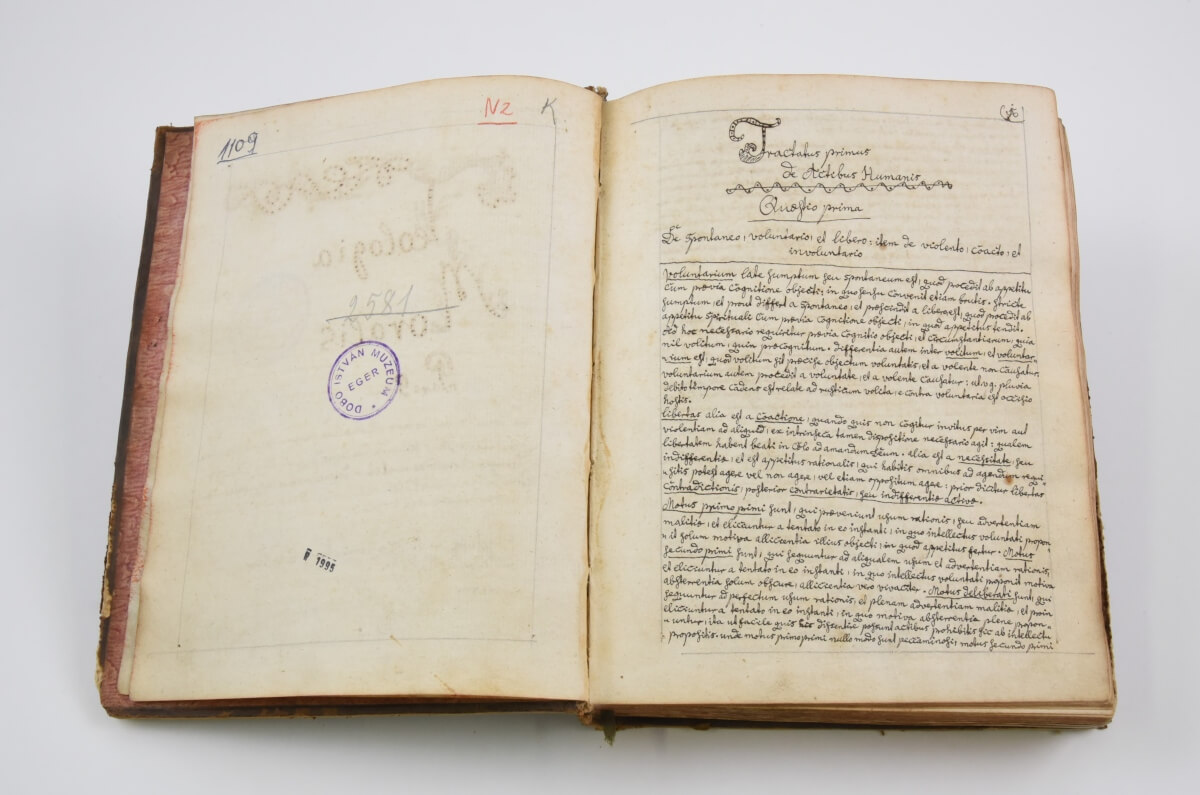 1109
N2
K.
2581
DOBÓ ISTVÁN MÚZEUM
EGER
1995
Tractatus primus
de Actibus Humanis
Quæstio prima
De spontaneo, voluntario, et libero: item de violento, coacto, et
involuntario
Voluntarium late sumptum seu spontaneum est, quod procedit ab appetitu
cum prævia cognitione objecti: in quo sensu convenit etiam brutis. Stricte
sumptum, et prout differt a spontaneo, et præscindit a libero, est, quod procedit ab
appetitu spirituali cum prævia cognitione objecti, in quod appetitus tendit.
Ad hoc necessario requiritur prævia cognitio objecti, et circumstantiarum, quia
nil volitum, quin præcognitum. differentia autem inter volitum, et voluntar-
-ium est, quod volitum sit præcise objectum voluntatis, et a volente non causatur,
voluntarium autem procedit a voluntate, et a volente causatur: ut v.g. pluvia
debito tempore cadens est relate ad rusticum volita: e contra voluntaria est occisio
hostis.
libertas alia est a coactione, quando quis non cogitur invitus per vim aut
violentiam ad aliquid, ex intrinseca tamen dispositione necessario agit: qualem
libertatem habent beati in Cœlo ad amandum Deum. alia est a necessitate, seu
indifferentiæ, et est appetitus rationalis, qui habitis omnibus ad agendum requi-
-sitis potest agere vel non agere, vel etiam oppositum agere: prior dicitur libertas
contradictionis, posterior contrarietatis, seu indifferentiæ activæ.
Motus primo primi sunt, qui præveniunt usum rationis, seu advertentiam
malitiæ, et eliciuntur a tentato in eo instanti, in quo intellectus voluntati propon-
-it solum motiva allicientia illius objecti, in quod appetitus fertur. Motus
secundo primi sunt, qui sequuntur ad aliqualem usum et advertentiam rationis,
et eliciuntur a tentato in eo instanti, in quo intellectus voluntati proponit motiva
absterrentia solum obscure, allicientia vero vivaciter. Motus deliberati sunt, qui
sequuntur ad perfectum usum rationis, et plenam advertentiam malitiæ, et proin
eliciuntur a tentato in eo instanti, in quo motiva absterrentia plene propon-
-untur, ita ut facile quis dissentire possit actibus prohibitis sic ab intellectu
propositis. unde motus primo primi nullo modo sunt peccaminosi, motus secundo primi